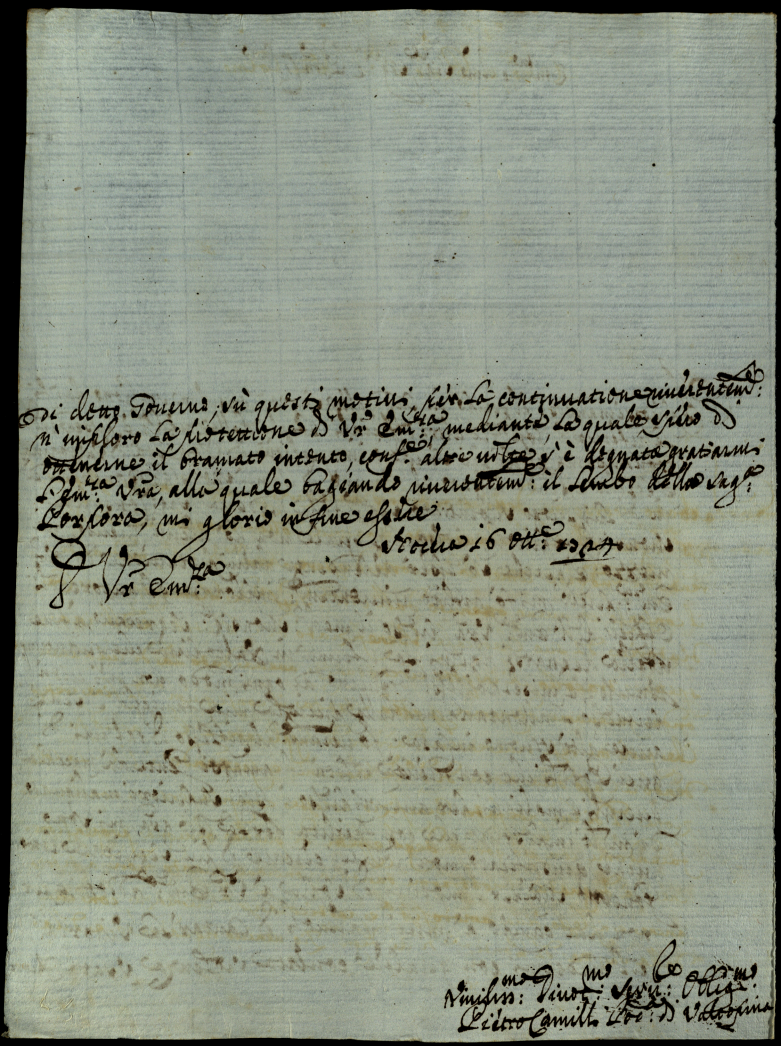 di detto Governo, sù questi motivi, per la continuatione riverentem:
n'imploro la protettione di Vr̃ Em:za, mediante la quale spero di
ottenerne il bramato intento, conf:e altre volte s'è degnata gratiarmi
l'Em:za Vrã, alla quale baciando riverentem: il lembo della sag:
Porpora, mi glorio in fine essere
16 Ott:e 1724
D Vr̃ Em:za
Div:mo Serv:re Oblig:mo
Pietro Camilli di